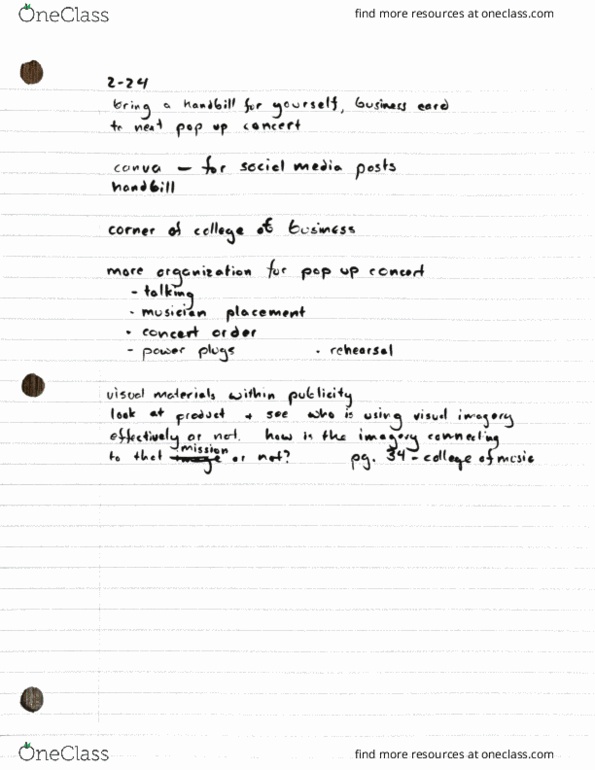 OneClass
find more resources at oneclass.com
2-24
bring a handbill for yourself, business card
to next pop up concert
conva - for social media posts
handbill
corner of college of business
more organization for pop up concert
- talking
· musician placement
· concert order
- power plugs · rehearsal
visual materials within publicity
look at product + see who is using visual imagery
effectively or not. how is the imagery connecting
mission
to that or not? pg. 34 - college of music
OneClass
find more resources at oneclass.com